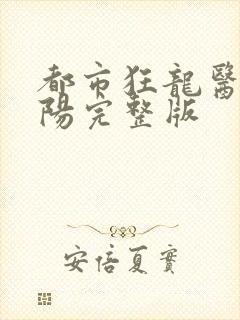 都市狂龍醫
陽完整版
安倍夏實